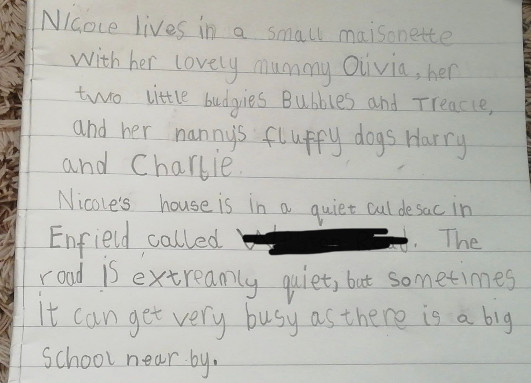 Nicole lives in a small maisonette
with her lovely mummy Olivia, her
two little budgies Bubbles and Treacle,
and her nanny's fluffy dogs Harry
and Charlie.
Nicole's house is in a quiet cul de sac in
Enfield called . The
road is extreamly quiet, but sometimes
it can get very busy as there is a big
school near by.